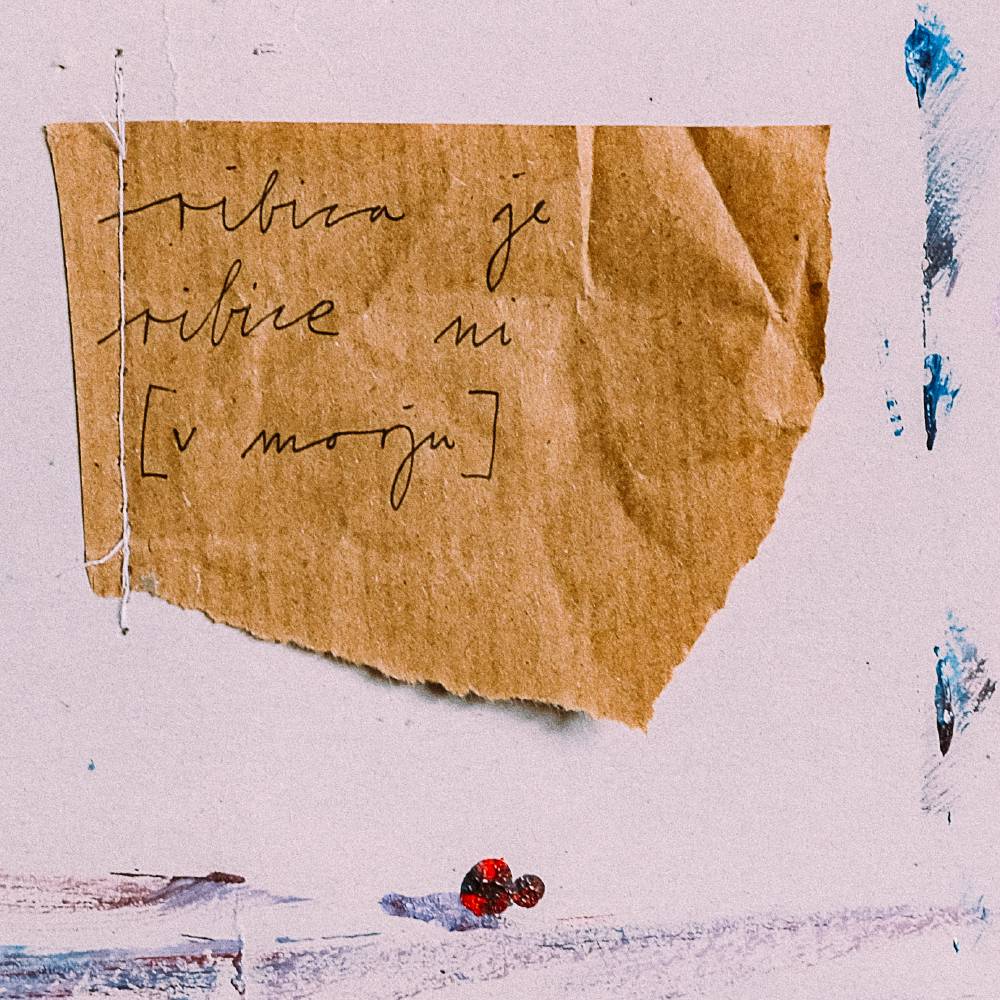 ribica je
ribice ni
[v morju]